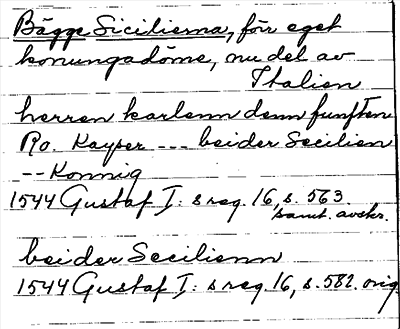 Bägge Sicilierna, förr eget
konungadöme, nu del av
Italien
herren karlenn denn funfften
Ro. Kayser --- beider Secilien
-- Konnig
1544 Gustaf I: s reg. 16, s. 563.
samt. avskr.
beider Secilienn
1544 Gustaf I: s reg. 16, s. 582. orig